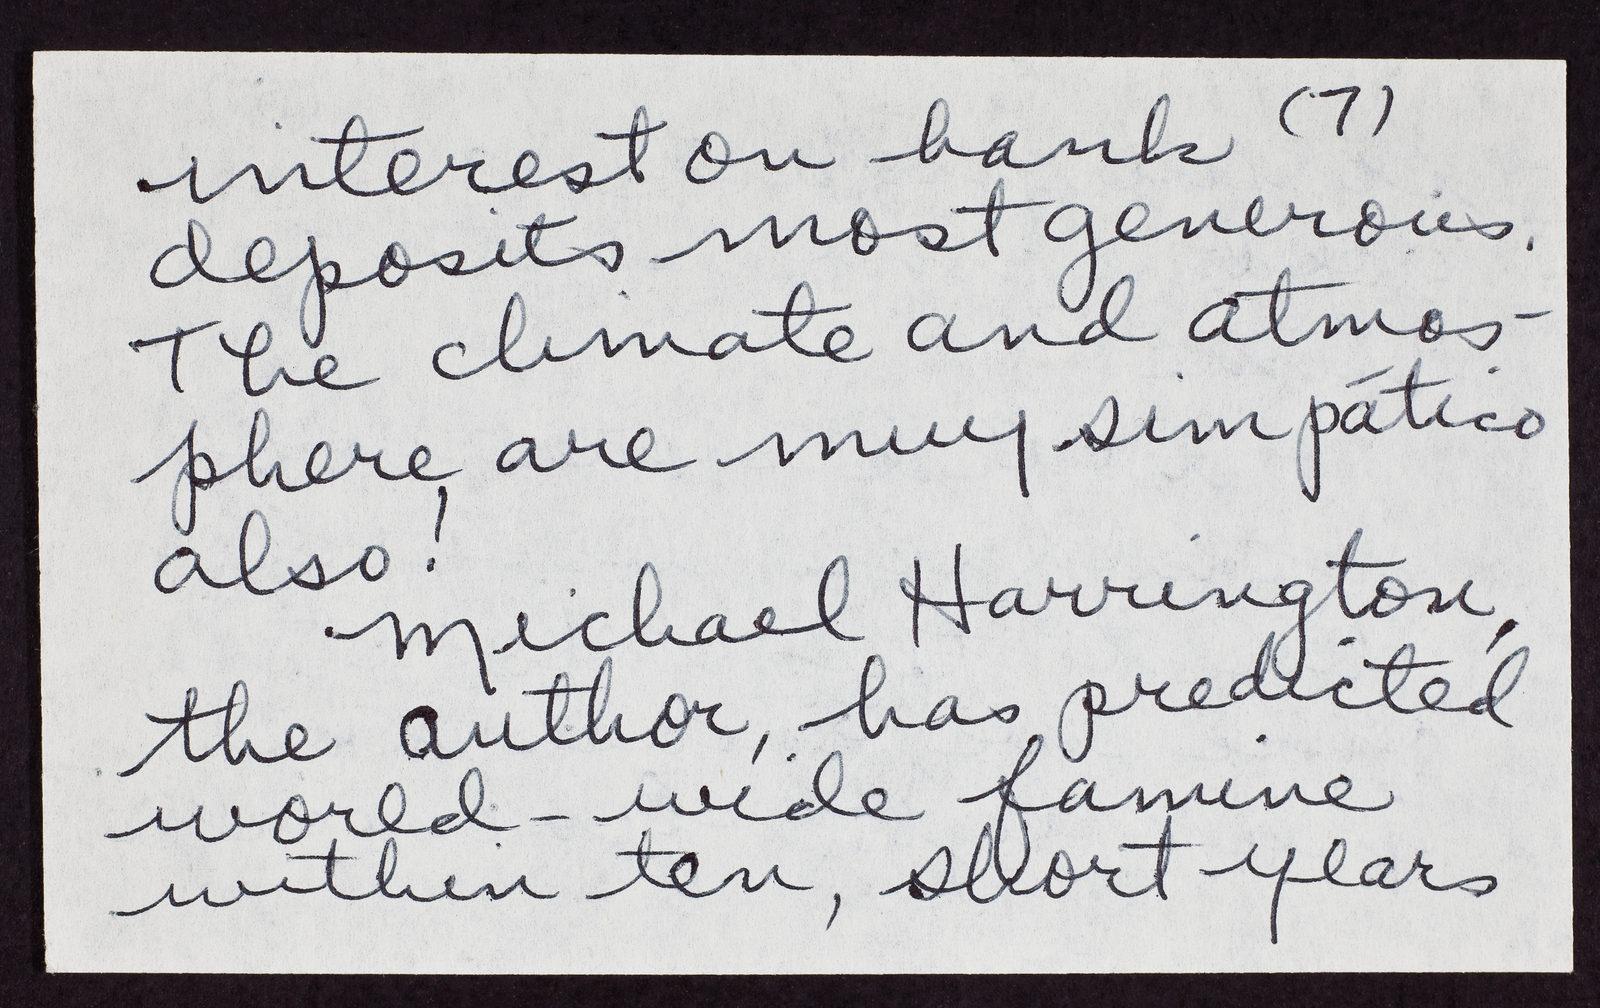 interest on bank (7)
deposits most generous.
The climate and atmos-
phere are muy simpático
also!
Michael Harrington,
the author, has predicted
world-wide famine
within ten, short years